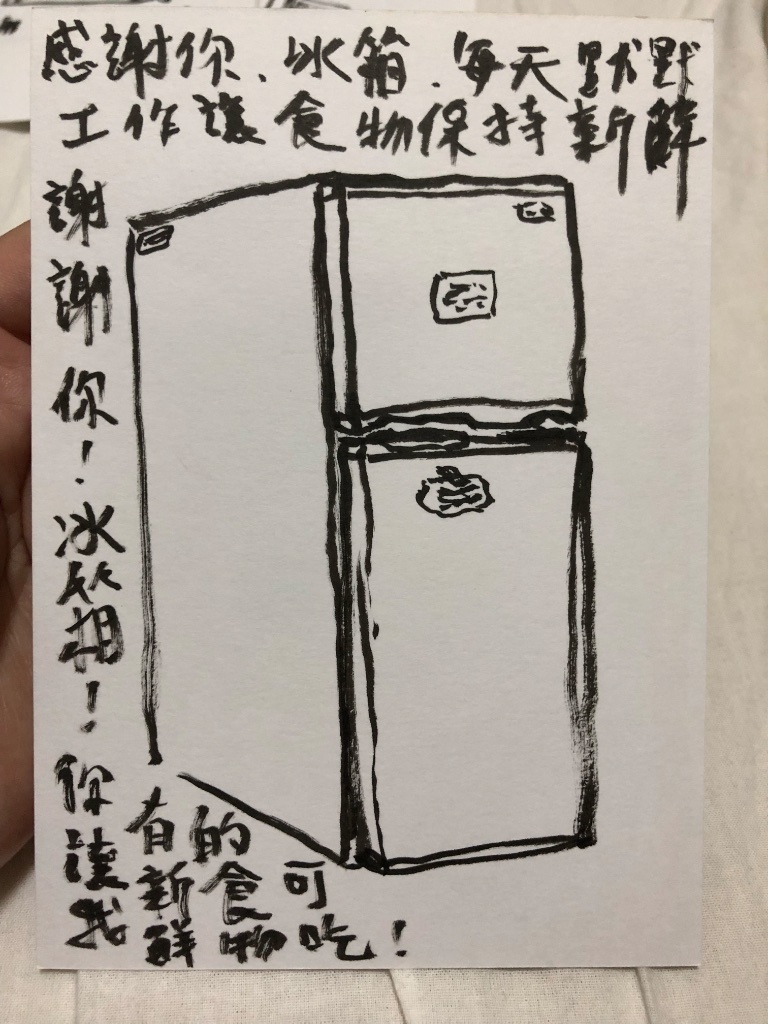 感謝你、冰箱.每天默默
工作讓食物保持新鮮
謝謝你！冰箱！你讓我
有新鮮
的食物
可吃！